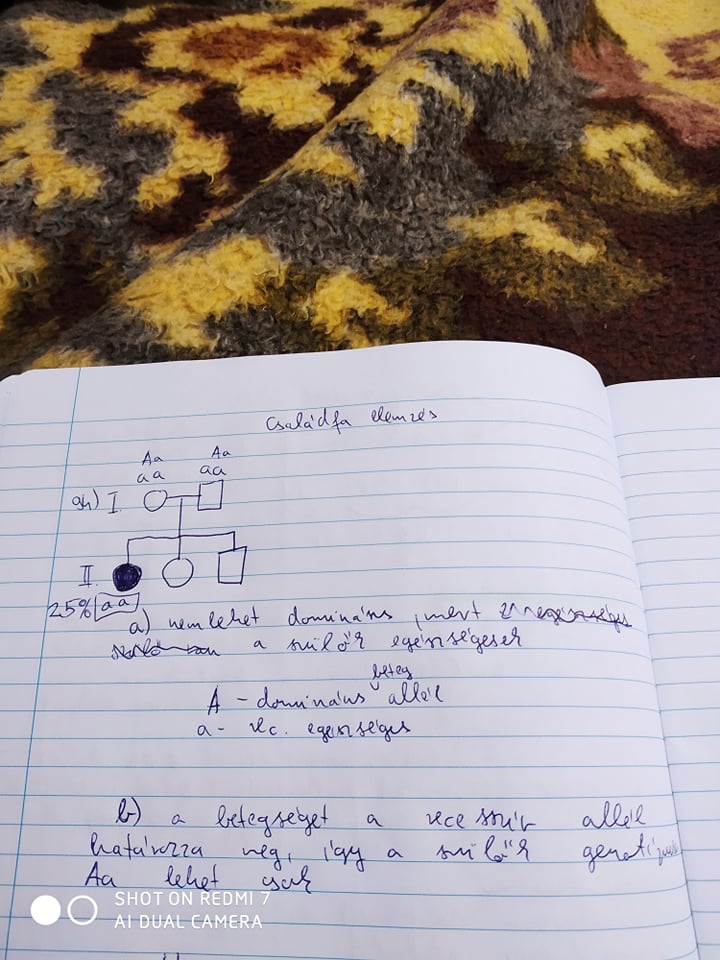 Családfa elemzés
Aa Aa
aa aa
I.
II.
25% aa
a) nem lehet domináns, mert
a szülők egészségesek
beteg
A - domináns allél
a - rec. egészséges
b) a betegséget a recesszív allél
határozza meg, így a szülők
Aa lehet csak
SHOT ON REDMI 7
AI DUAL CAMERA